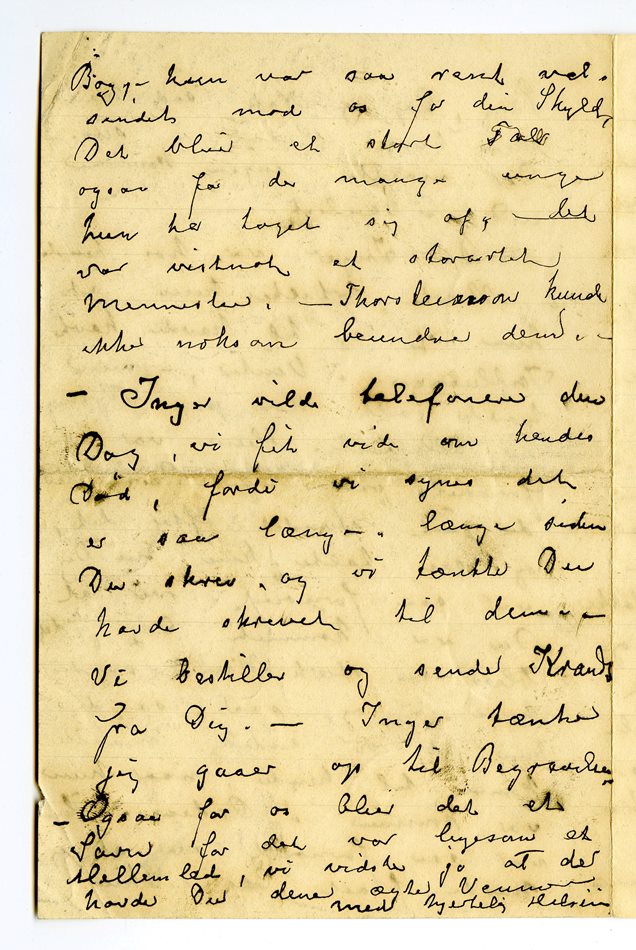 Bøgg,- hun var saa rørend vel-
sindet mod os for din Skyld,
Det bliver et stort Tab
ogsaa for de mange unge
hun har taget sig af, - det
var vistnok et storartet
Menneske. - Thorsteinsson kunde
ikke noksom beundre dem. -
- Inger vilde telefonere den
Dag, vi fik vide om hendes
Død, fordi vi synes det
er saa længe-, længe siden
Du skrev, og vi tænkte Du
havde skrevet til dem. -
Vi bestiller og sender Krands
fra Dig. - Inger tænker
jeg gaaer op til Begravelsen,
- Ogsaa for os blier det et
Savn for det var ligesom et
Mellemled, vi vidste jo at der
havde Du dine ægte Venner
med hjertelig Hilsen